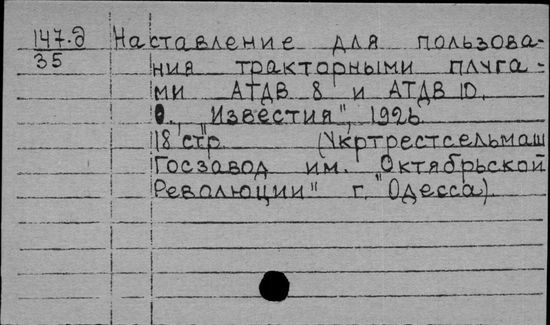 147.д Наставление для пользова-
35 ния тракторными плуга-
ми АТДВ 8 и АТДВ 10.
О., "Известия", 1926.
18 стр. (Укртрестсельмаш
Госзавод им. "Октябрьской
Революции" г. Одесса).